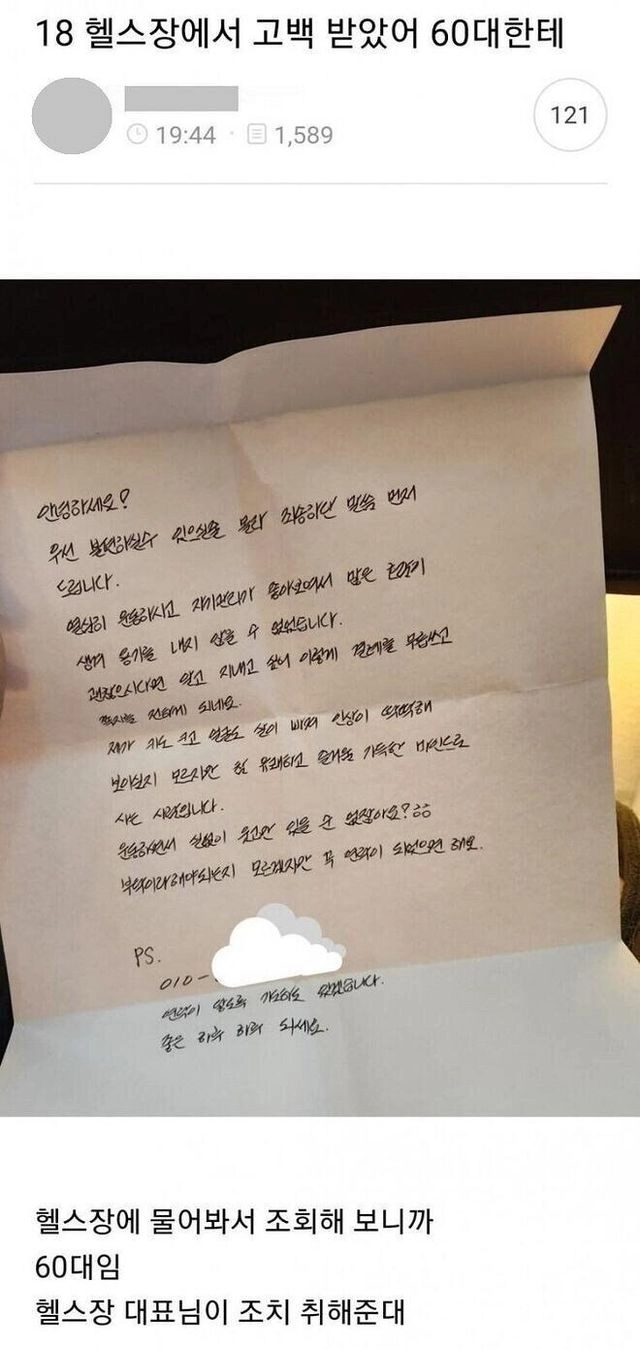 18 헬스장에서 고백 받았어 60대한테
19:44 · 1,589
121
안녕하세요?
우선 불편하실수 있으실줄 몰라 죄송하단 말씀 먼저
드립니다.
열심히 운동하시고 자기관리가 좋아보여서 많은 호감이
생겨 용기를 내지 않을 수 없었습니다.
괜찮으시다면 알고 지내고 싶어 이렇게 결례를 무릅쓰고
쪽지를 전하게 되네요.
제가 키도 크고 얼굴도 살이 빠져 인상이 딱딱해
보이실지 모르지만 참 유쾌하고 즐거움 가득한 마인드로
사는 사람입니다.
운동하면서 실없이 웃고만 있을 순 없잖아요?
부탁이라해야되는지 모르겠지만 꼭 연락이 되었으면 해요.
PS.
010-
연락이 기다리고 있겠습니다.
좋은 하루 하루 되세요.
헬스장에 물어봐서 조회해 보니까
60대임
헬스장 대표님이 조치 취해준대